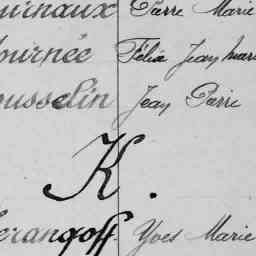 urnaux Pierre Marie
ournée Félix Jean Marie
ousselin Jean Pierre
K.
erangoff Yves Marie